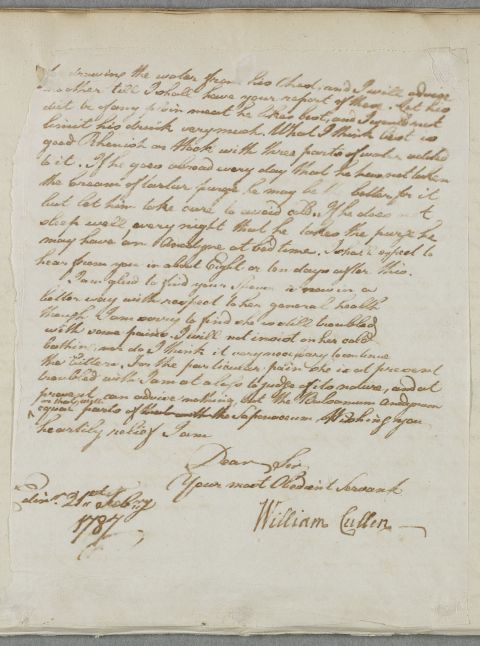 drawing the water from his Chest, and I will advise
no other till I shall have your report of them. Let his
diet be of any plain meat he likes best, and I would not
limit his drink very much. What I think best is
good Rhenish or Hock with three parts of water added
to it. If he goes abroad every day that he has not taken
the cream of tartar purge, he may be the better for it
but let him take care to avoid cold. If he does not
sleep well every night that he takes the purge he
may have an Anodyne at bed time. I shall expect to
hear from you in about Eight or ten days after this.
I am glad to find your is now in a
better way with respect to her general health
though I am sorry to find she is still troubled
with some pains. I will not insist on her cold
bathing nor do I think it very necessary to continue
the bitters. For the particular pain she is at present
troubled with I am at a loss to judge of its nature, and at
present can advise nothing but the Balsamum anodynum
equal parts of that with the Saponaceum Wishing you
heartily relief I am
Dear Sir
Your most Obedient Servant
William Cullen
Edinr. 21st Febry
1787